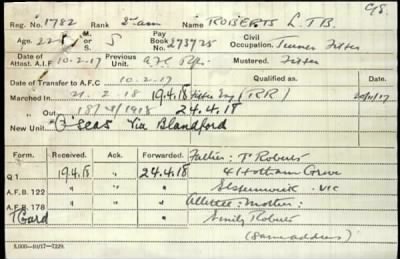 C/S.
Reg. No. 1782 Rank 2/am Name ROBERTS L.T.B.
Age. 22 M or S S Pay Book No. 273725 Civil Occupation. Turner Fitter
Date of Attest. A.I.F. 10.2.17 Previous Unit. Mustered. Fitter
Date of Transfer to A.F.C 10.2.17 Qualified as Date
Marched In 21.2.18 19.4.18 Fitter (RR)
" Out 18/3/1918 24.4.18
New Unit. O'seas Via Blandford
Form. Received. Ack. Forwarded. Father: T. Roberts
Q 1 19.4.18 " 24.4.18 41 Hotham Grove
A.F.B. 122 " " " Elsternwick. VIC
A.F.B. 178 " " " Allottee: Mother:
T Card Emily Roberts
(Same address)
5,000—10/17—7229.